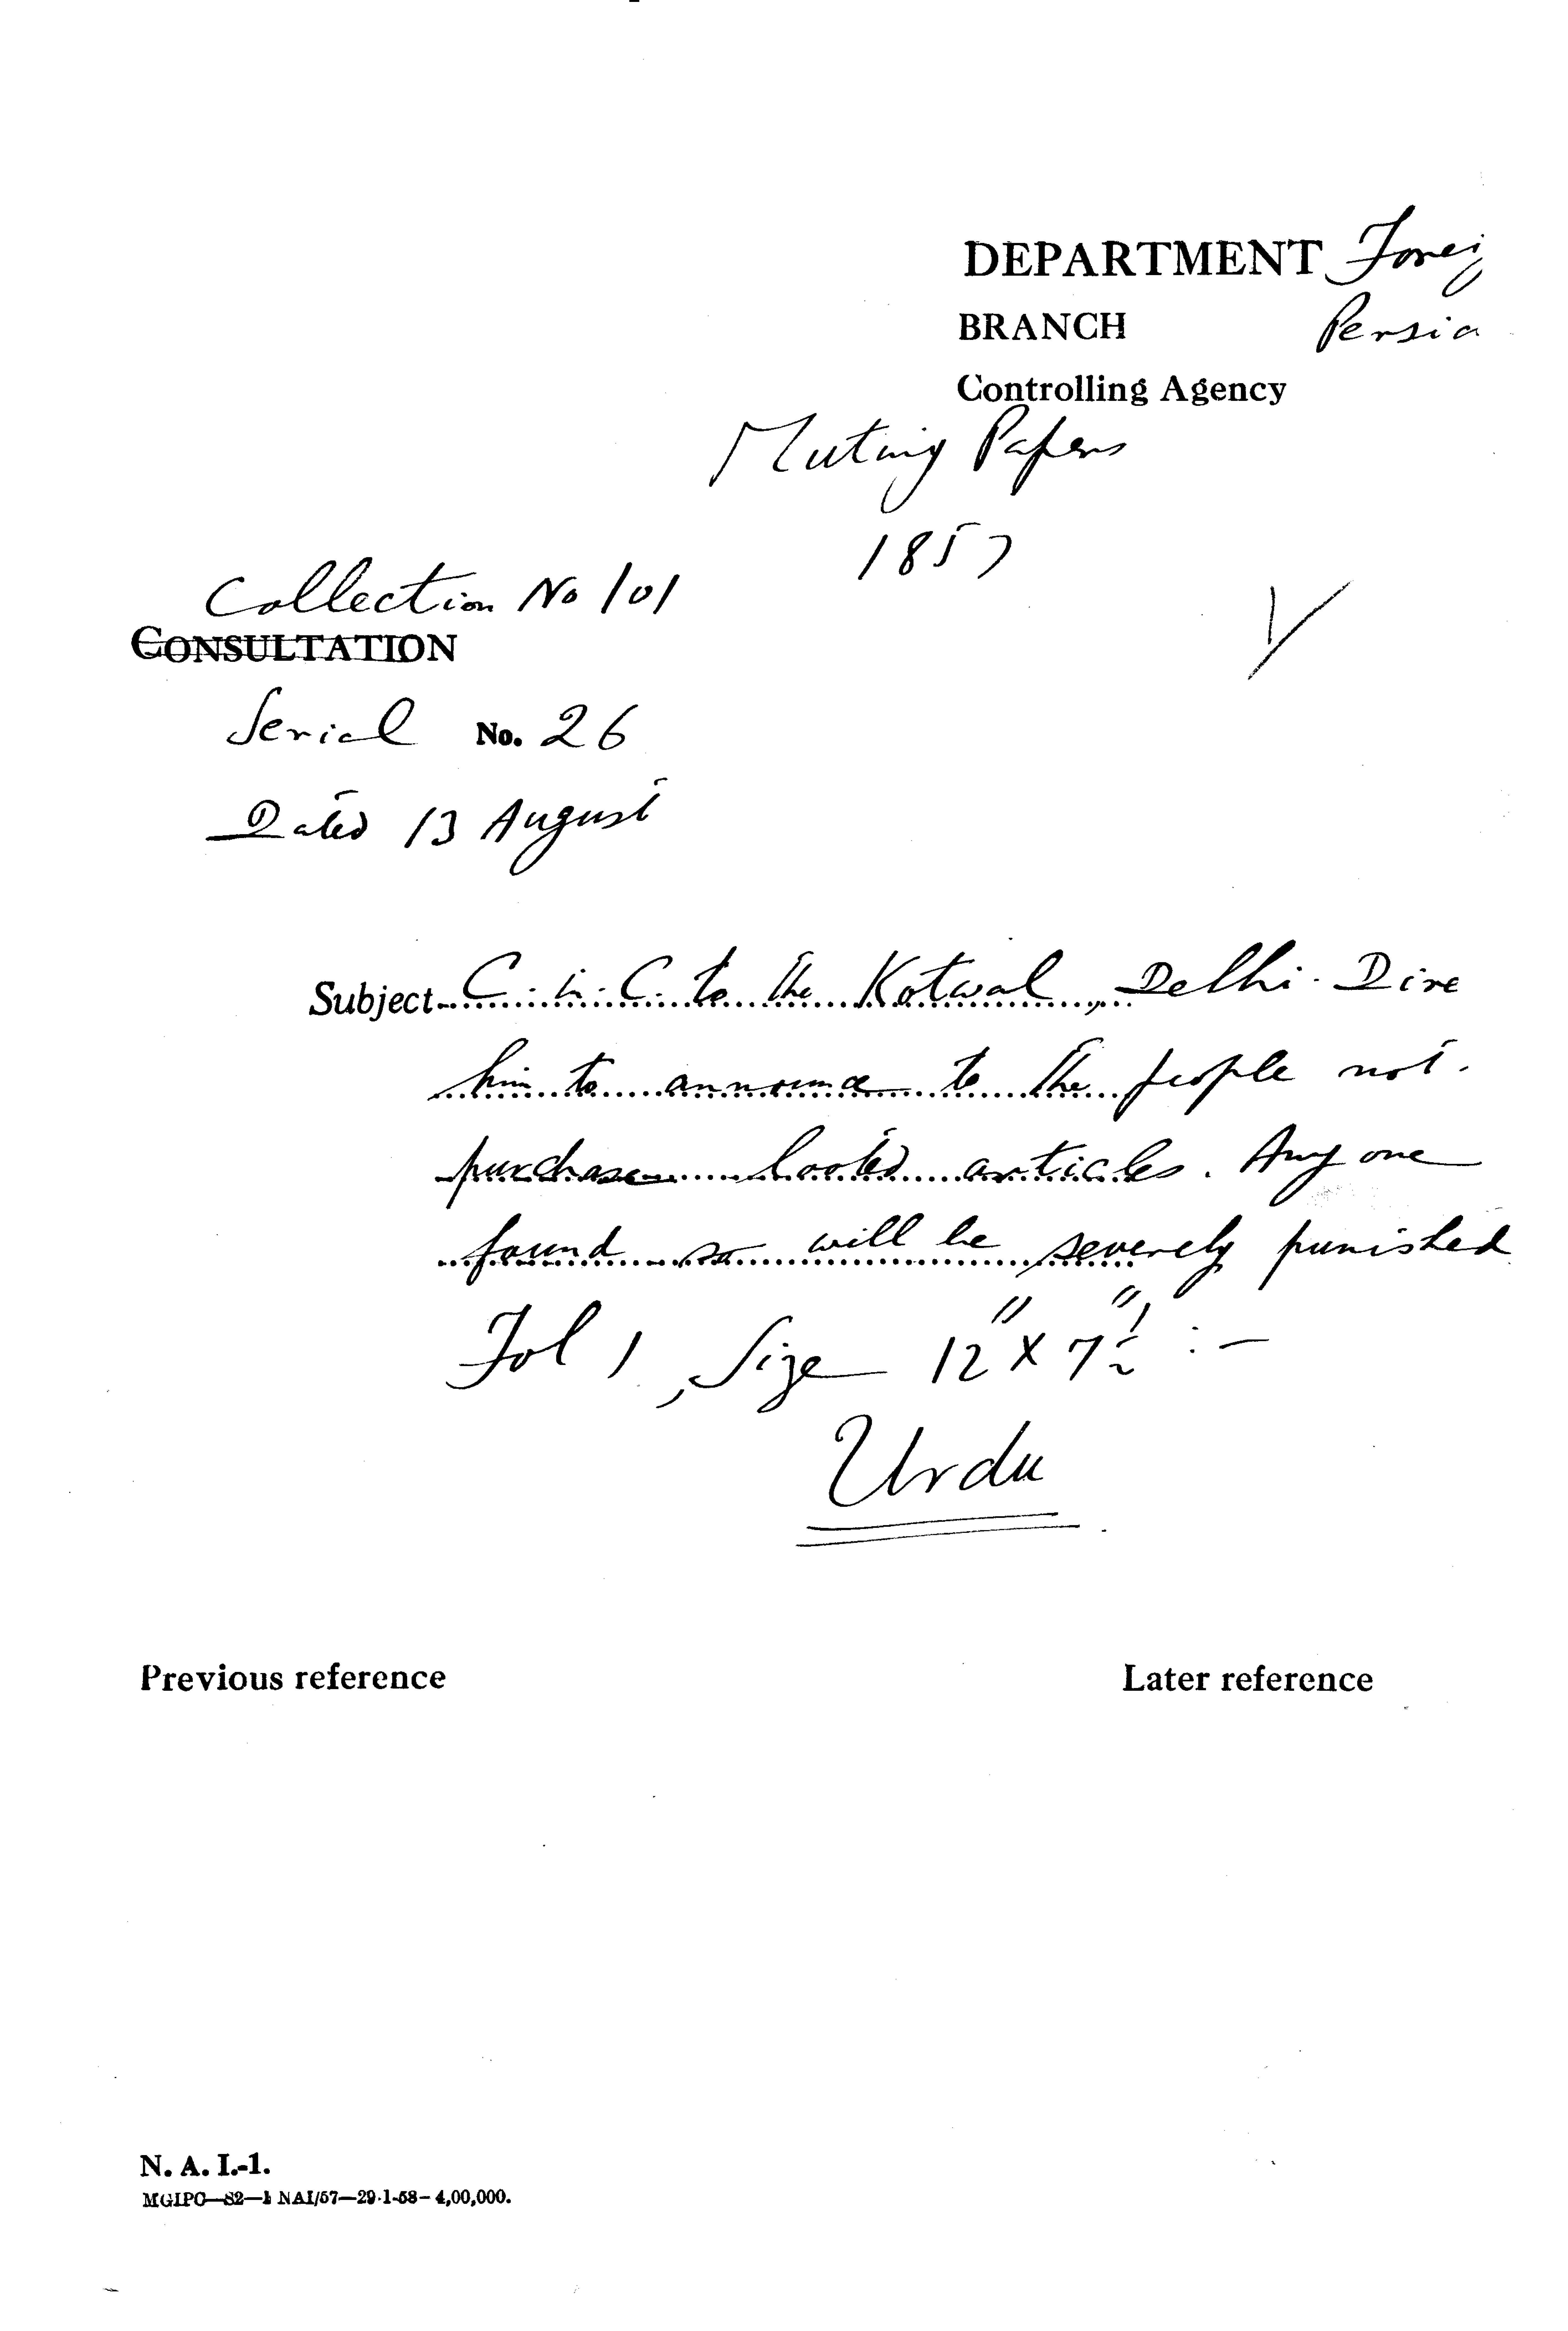 DEPARTMENT Foreig
BRANCH Persia
Controlling Agency
Mutiny Papers
1857
Collection No 101
CONSULTATION
Serial No. 26
Dated 13 August
Subject C. in. C. to the Kotwal, Delhi. Dire
him to announce to the people not.
purchase looted articles. Any one
found so will be severely punished
Fol 1, Size 12" X 7 1/2" :-
Urdu
Previous reference
Later reference
N. A. I.-1.
MGIPC—S2—1 NAI/57—29-1-58—4,00,000.